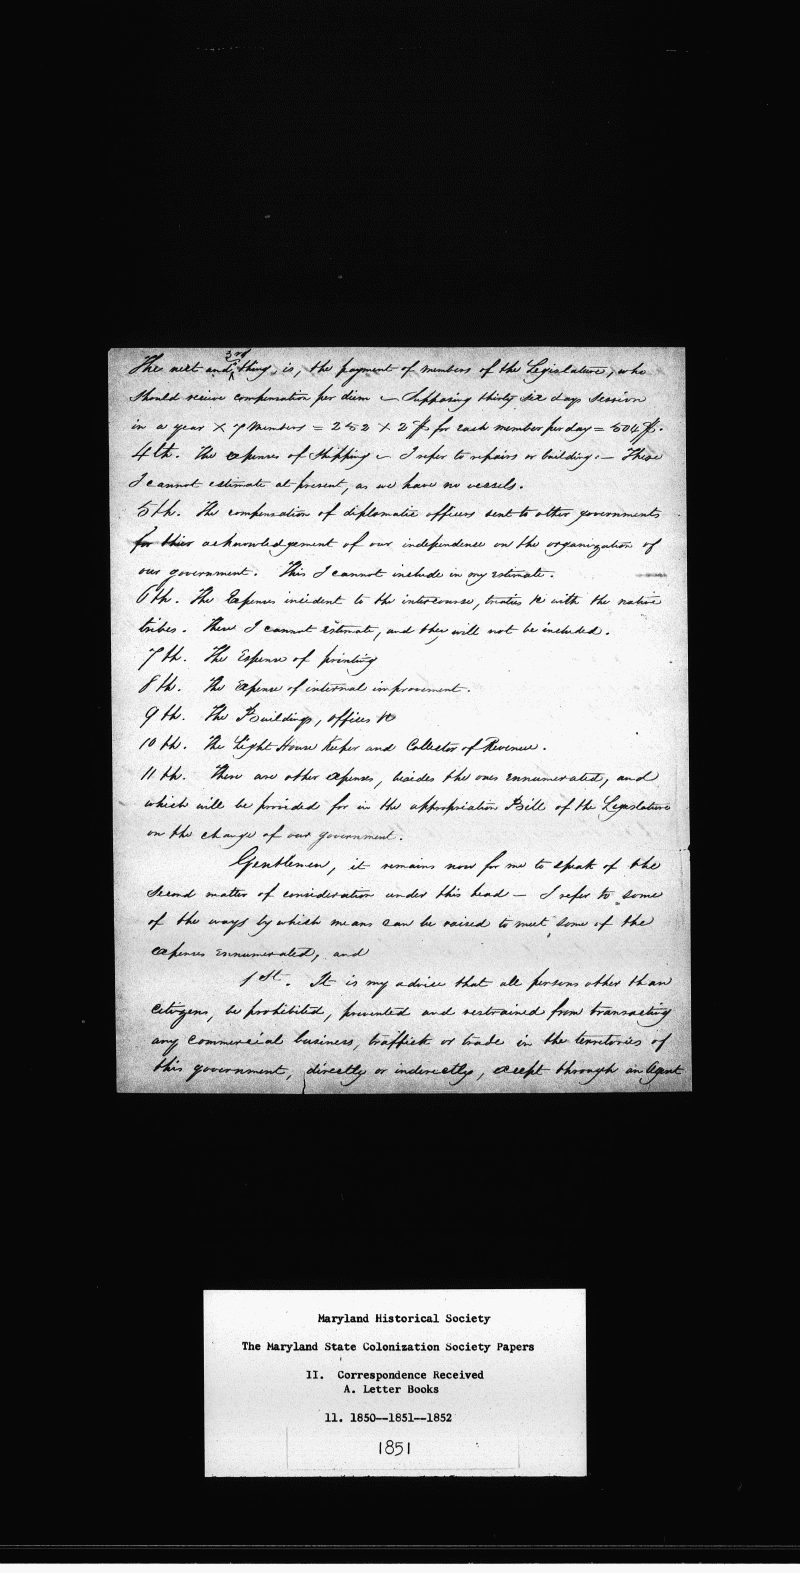 The next and 3rd thing, is, the payment of members of the Legislature, who
should receive compensation per diem – Supposing thirty six days session
in a year × 7 Members = 252 × 2$ for each member per day = 504$.
4th. The expenses of Shipping – I refer to repairs or building:– These
I cannot estimate at present, as we have no vessels.
5th. The compensation of diplomatic officers sent to other governments
for thier acknowledgement of our independence on the organization of
our government. This I cannot include in my estimate.
6th. The Expenses incident to the intercourse, treaties &c with the native
tribes. These I cannot estimate, and they will not be included.
7th. The Expense of printing
8th. The Expense of internal improvement.
9th. The Buildings, offices &c
10th. The Light House Keeper and Collector of Revenue.
11th. There are other expenses, besides the ones ennumerated, and
which will be provided for in the appropriation Bill of the Legislature
on the change of our government.
Gentlemen, it remains now for me to speak of the
second matter of consideration under this head – I refer to some
of the ways by which means can be raised to meet some of the
expenses ennumerated, and
1st. It is my advice that all persons other than
citizens, be prohibited, prevented and restrained from transacting
any commercial business, traffick or trade in the territories of
this government, directly or indirectly, except through an Agent
Maryland Historical Society
The Maryland State Colonization Society Papers
II. Correspondence Received
A. Letter Books
11. 1850--1851--1852
1851